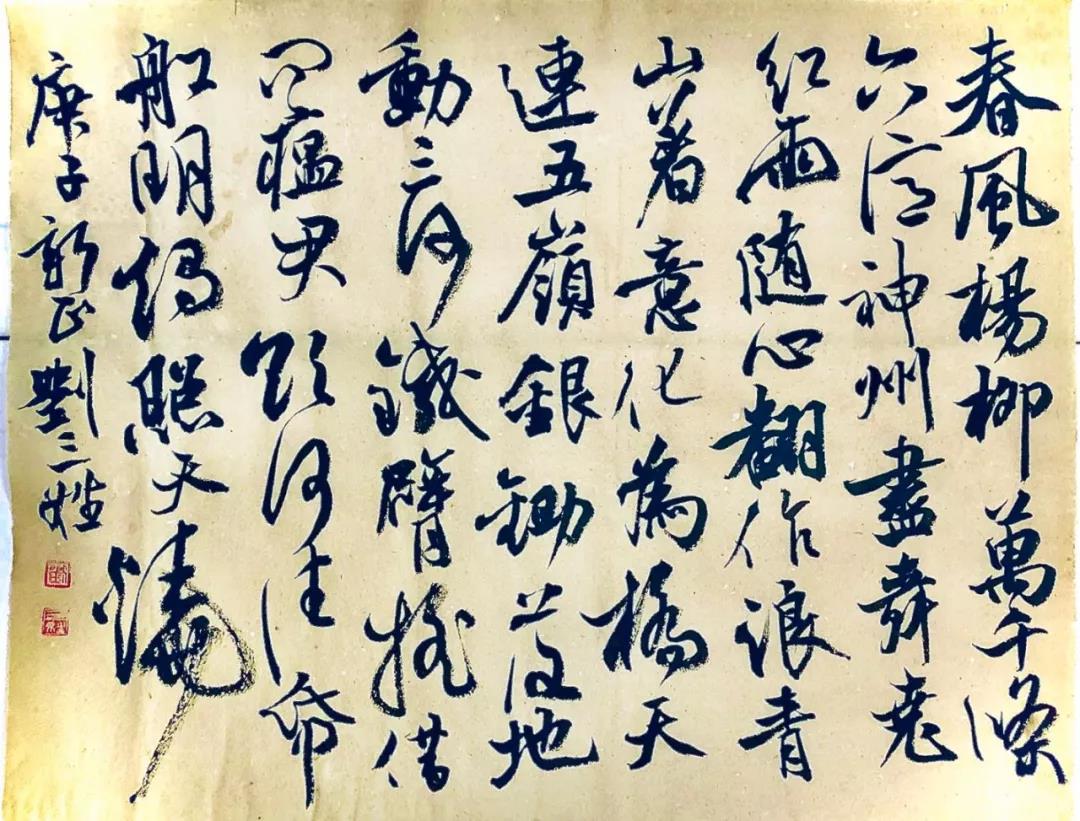 春風楊柳萬千條
六億神州盡舜堯
紅雨随心翻作浪青
山着意化為橋天
連五嶺銀鋤落地
動三河鐵臂摇借
問瘟君欲何往帋
船明燭照天燒
庚子新正劉三